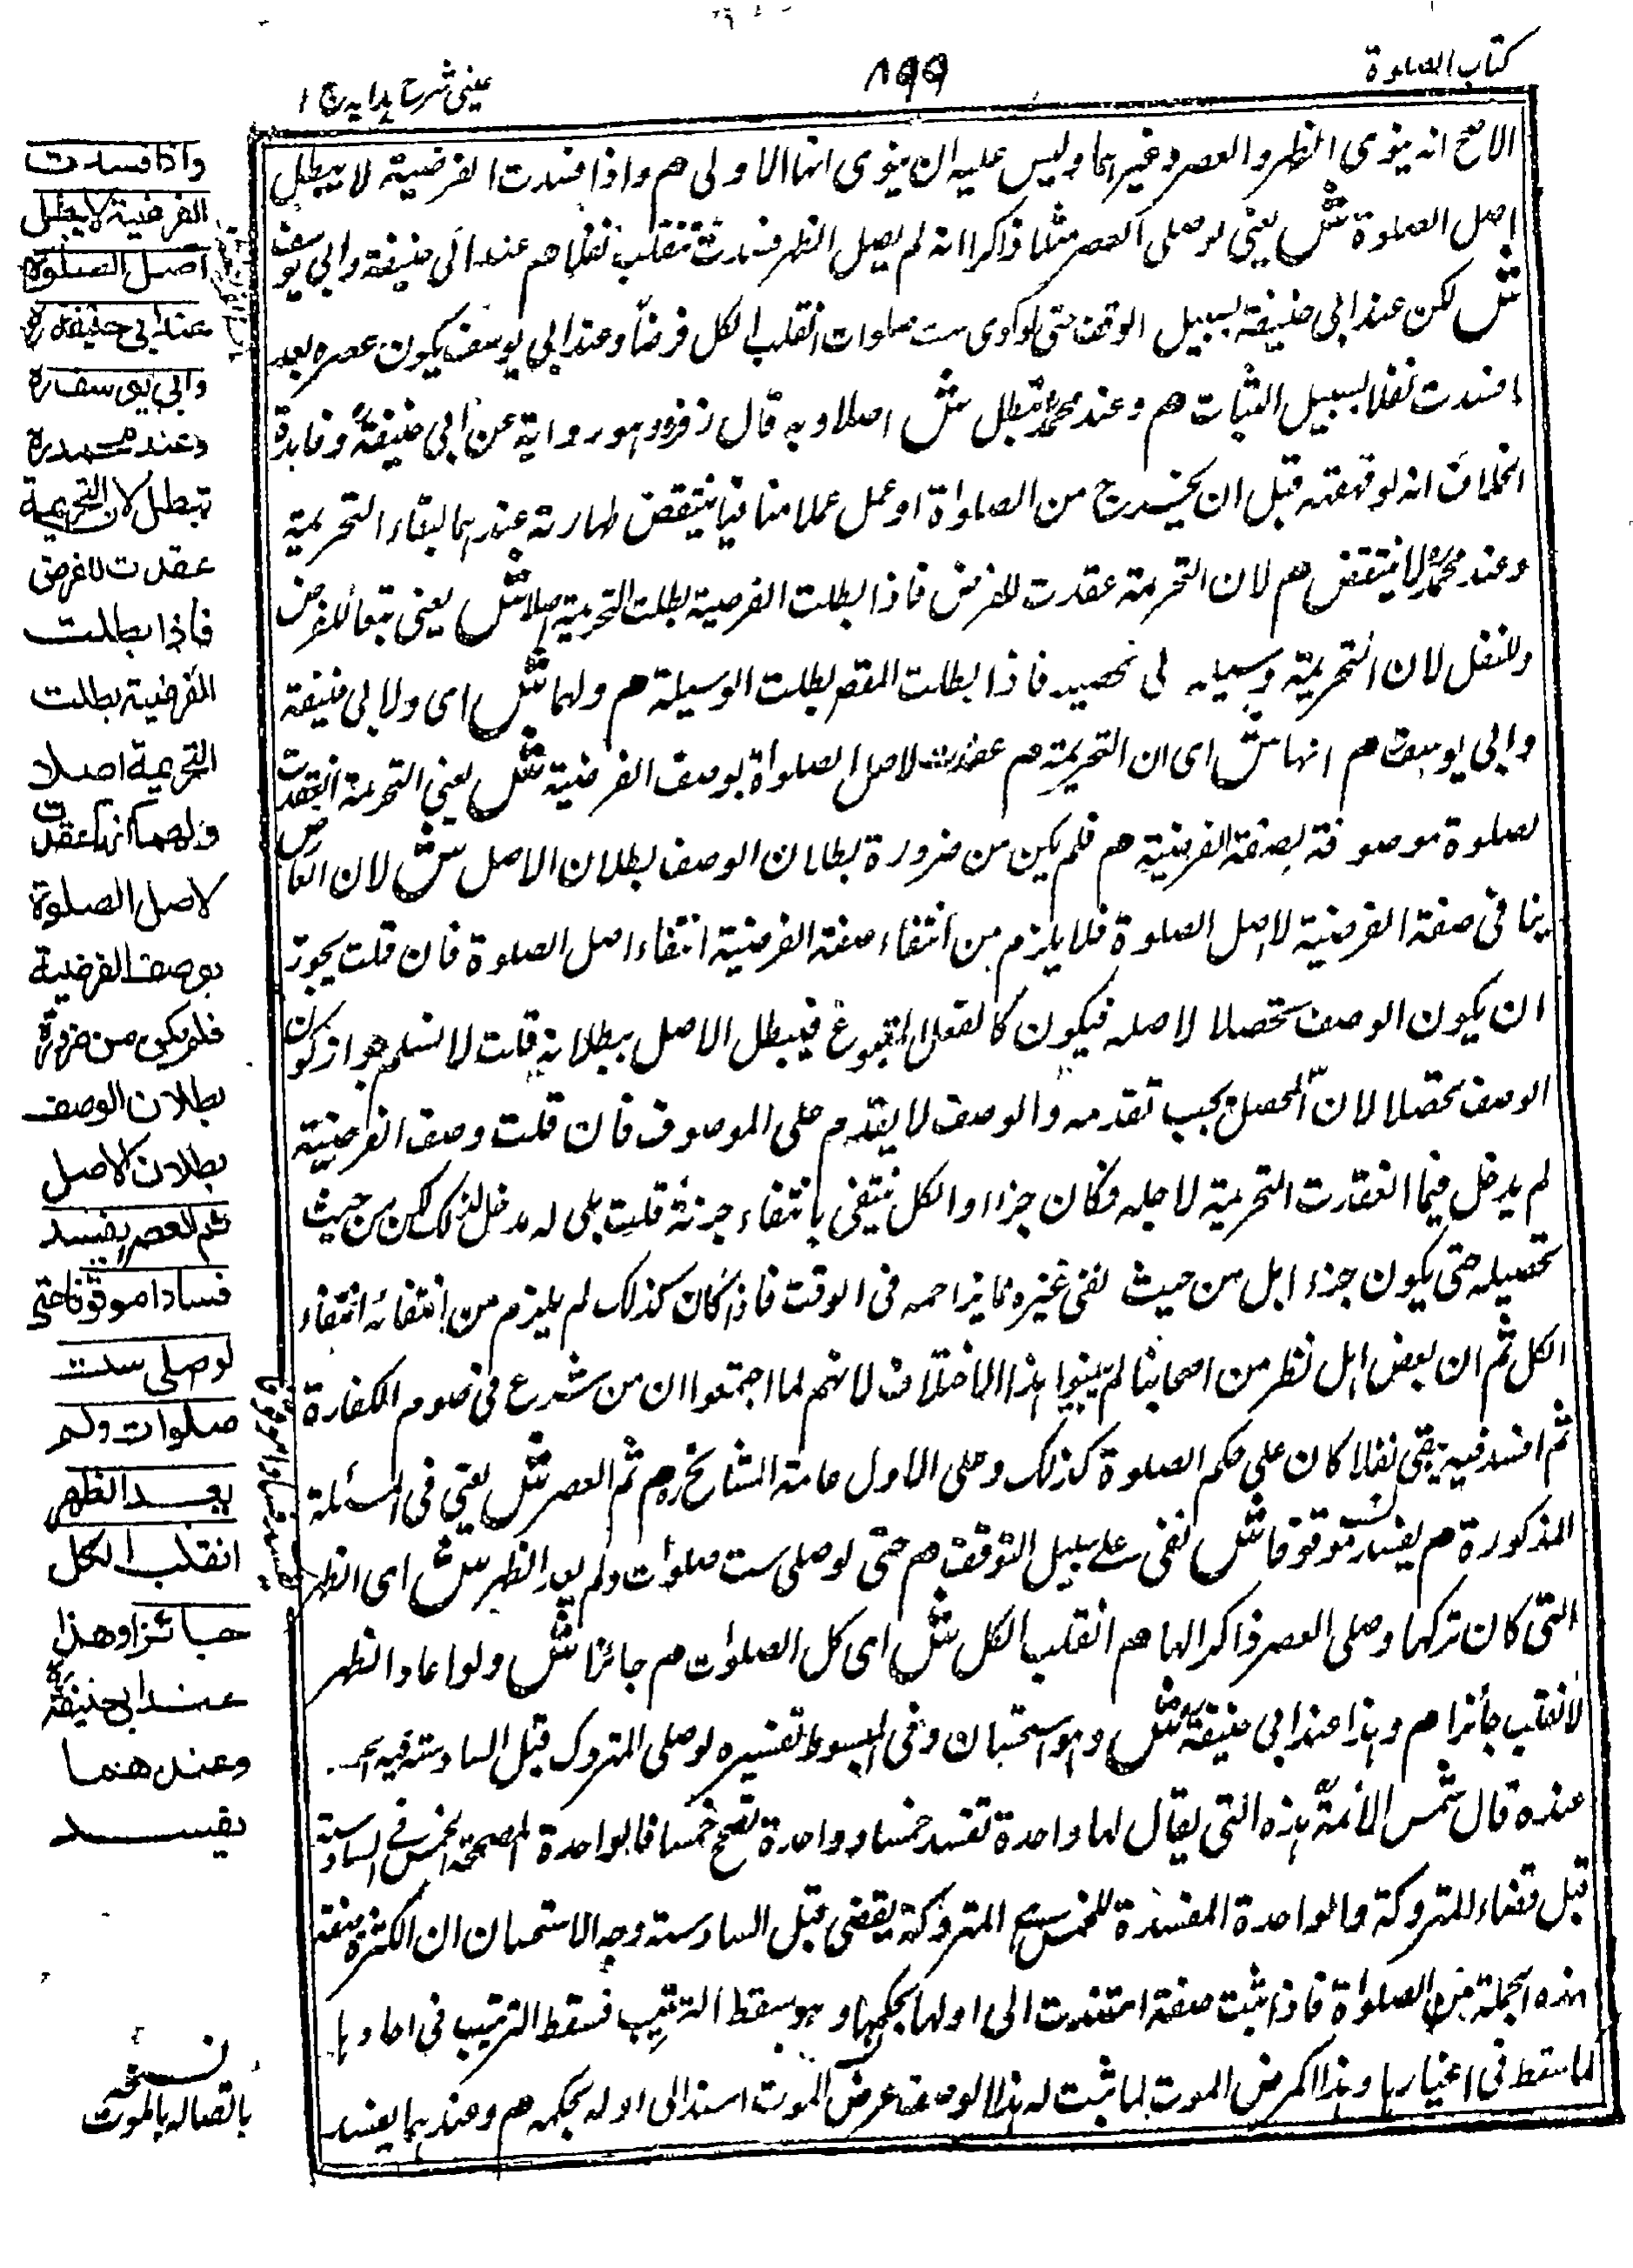 كتاب الصلوة
٨٩٩
عيني شرح هدايه ج ١
الاصح انه ينوى الظهر والعصر وغيرهما وليس عليه ان ينوى انها الاولى هم واذا فسدت الفرضية لا يبطل
اصل الصلوة ش يعنى لو صلى العصر مثلا ذاكرا انه لم يصل الظهر فسدت تنقلب نفلا هم عند ابى حنيفة وابى يوسف
ش لكن عند ابى حنيفة بسبيل الوقف حتى لو ادى ست صلوات انقلب الكل فرضا وعند ابى يوسف يكون عصره بعد
ما فسدت نفلا بسبيل الثبات هم وعند محمد تبطل ش اصلا وبه قال زفر وهو رواية عن ابى حنيفة وفائدة
الخلاف انه لو قهقه قبل ان يخرج من الصلواة او عمل عملا منافيا ينتقض طهارته عندهما لبقاء التحريمة
وعند محمد لا ينتقض هم لان التحريمة عقدت للفرض فاذا بطلت الفرضية بطلت التحريمة اصلا ش يعنى تبعا للفرض
وللنفل لان التحريمة وسيلة لى تحصيد فاذا بطلت المقصر بطلت الوسيلة هم ولهما ش اى ولابى حنيفة
وابى يوسف هم انها ش اى ان التحريمة هم عقدت لاصل الصلواة بوصف الفرضية ش يعنى التحريمة انعقدت
لصلوة موصوفة بصفة الفرضية هم فلم يكن من ضرورة بطلان الوصف بطلان الاصل ش لان العارض
ينا فى صفة الفرضية لا اصل الصلوة فلا يلزم من انتفاء صفة الفرضية انتفاء اصل الصلوة فان قلت يجوز
ان يكون الوصف محصلا لاصله فيكون كالفصل المقيوع فيبطل الاصل ببطلانه قلت لا نسلم جواز كون
الوصف محصلا لان المحصل يجب تقدمه والوصف لا يقدم على الموصوف فان قلت وصف الفرضية
لم يدخل فيما انعقدت التحريمة لاجله فكان جزءا والكل ينتفى بانتفاء جزئه قلت بلى له مدخل لذلك لكن من حيث
تحصيله حتى يكون جزءا بل من حيث نفى غيره مما يزاحمه فى الوقت فاذا كان كذلك لم يلزم من انتفائه انتفاء
الكل ثم ان بعض اهل نظر من اصحابنا لم يبينوا هذا الاختلاف لانهم لما اجتمعوا ان من شرع فى صوم الكفارة
ثم افسد فيه يبقى نفلا كان على حكم الصلوة كذلك وعلى الاول عامة المشايخ رہ هم ثم العصر ش يعنى فى المسئلة
المذكورة هم يفسد موقوفا ش نفى على سبيل التوقف هم حتى لو صلى ست صلوات ولم يعد الظهر ش اى الظهر
التى كان تركها وصلى العصر ذاكرا لها هم انقلب الكل ش اى كل الصلوات هم جائزا ش ولو اعاد الظهر
لا نقلب جائزا هم وهذا عند ابى حنيفة ش وهو استحسان وفى المبسوط تفسيره لو صلى المتروك قبل السادسة فيه
عنده قال شمس الائمة هذه التى يقال لها واحدة تفسد خمسا وواحدة تصحح خمسا فالواحدة المصححة للخمس فى السادسة
قبل قضاء المتروكة والواحدة المفسدة للخمس المتروكة يقضى قبل السادسة وجه الاستحسان ان الكثرة صفة
هذه الجملة من الصلواة فاذا ثبت صفة استندت الى اولها بحكمها وهو سقط الترتيب فسقط الترتيب فى احادها
لما سقط فى اغيارها وهذا كمرض الموت لما ثبت له هذا الوصف عرض الموت استند الى اوله بحكمه هم وعندهما يفسد
واذا فسدت
الفرضية لا يبطل
اصل الصلوة
عند ابى حنيفة رہ
وابى يوسف رہ
وعند محمد رہ
تبطل لان التحريمة
عقدت للفرض
فاذا بطلت
الفرضية بطلت
التحريمة اصلا
ولهما انها عقدت
لاصل الصلوة
بوصف الفرضية
فلم يكن من ضرورة
بطلان الوصف
بطلان الاصل
ثم العصر يفسد
فسادا موقوفا حتى
لو صلى ست
صلوات ولم
يعد الظهر
انقلب الكل
جائزا وهذا
عند ابى حنيفة رہ
وعندهما
يفسد
نسخه
باتصاله بالموت